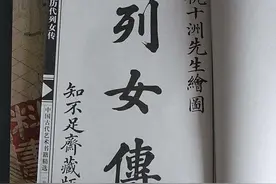 仇十洲先生繪圖
列女傳
知不足齋藏版
历代列女传
中国古代艺术书籍精选